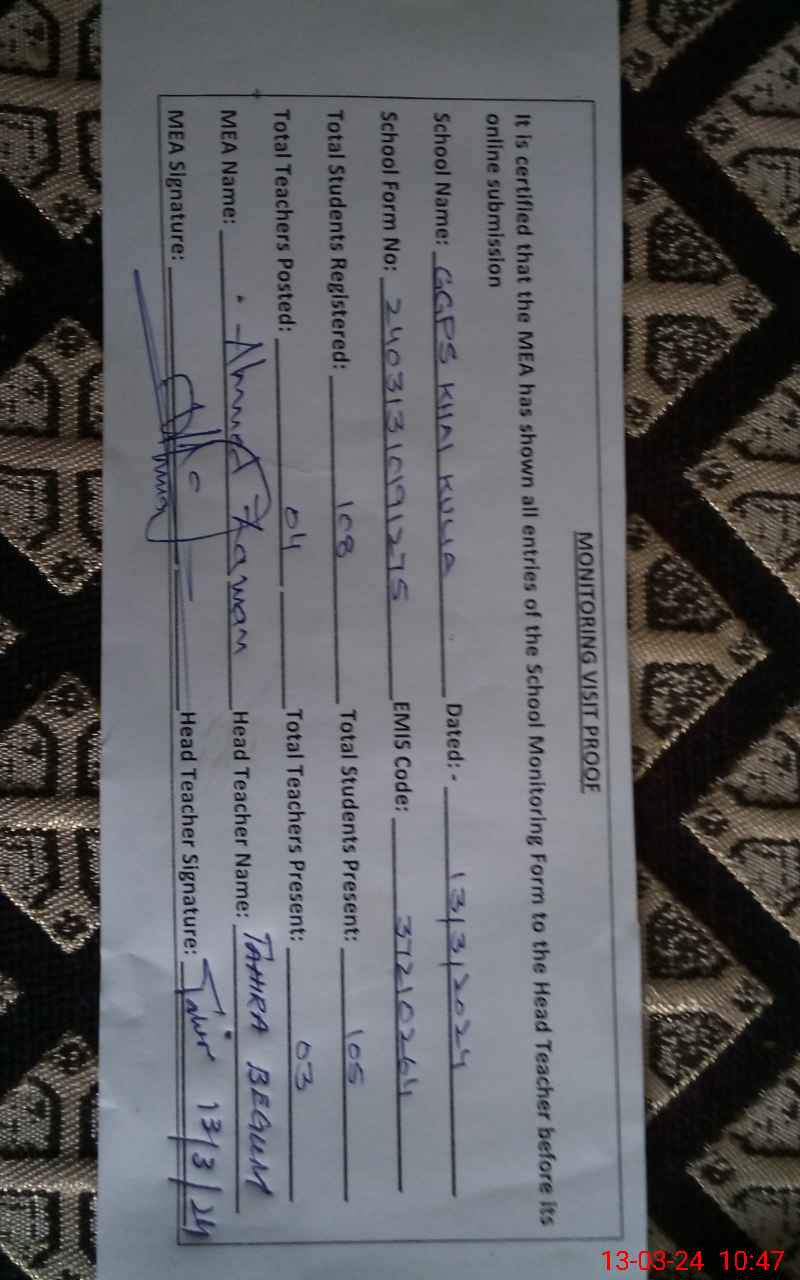 MONITORING VISIT PROOF
It is certified that the MEA has shown all entries of the School Monitoring Form to the Head Teacher before its
online submission
School Name: GGPS KHAI KULIA Dated:- 13/3/2024
School Form No: 24031310191275 EMIS Code: 37210264
Total Students Registered: 108 Total Students Present: 105
Total Teachers Posted: 04 Total Teachers Present: 03
MEA Name: Ahmed Head Teacher Name: TAHIRA BEGUM
MEA Signature: Head Teacher Signature: 13/3/24
13-03-24 10:47